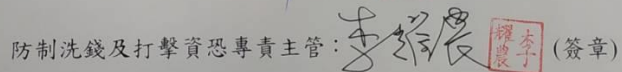 防制洗錢及打擊資恐專責主管：李耀農 李耀農 (簽章)